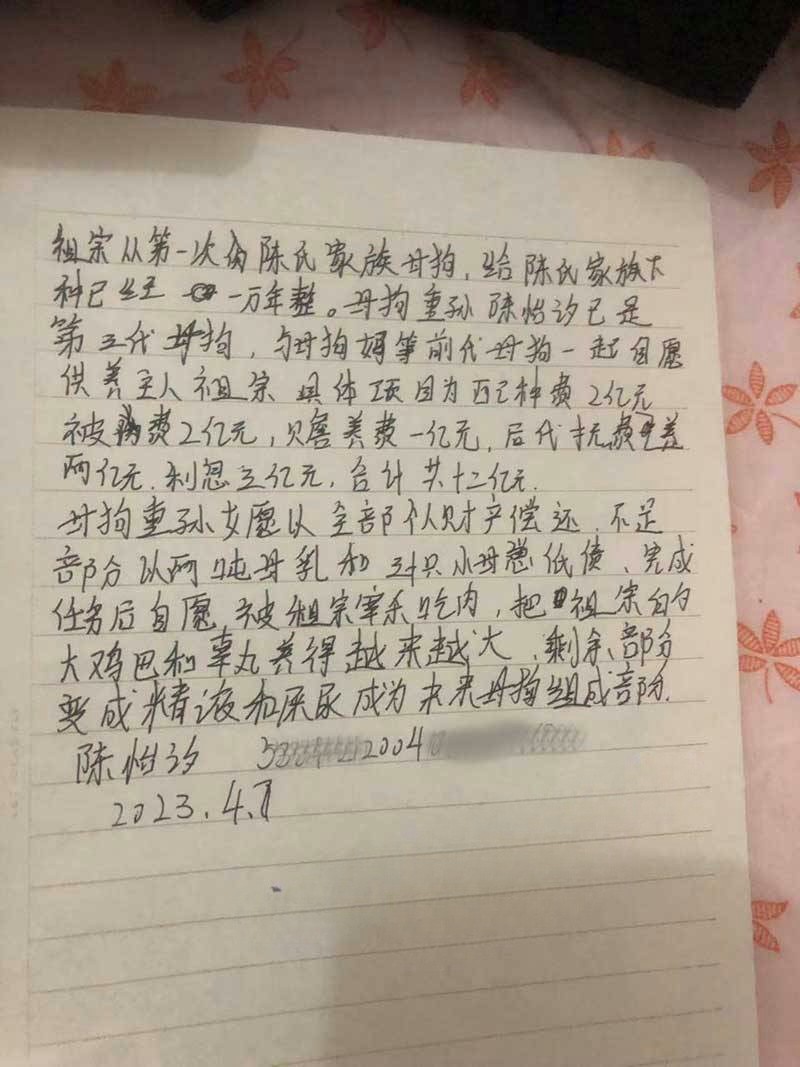 祖宗从第一次肏陈氏家族母狗，给陈氏家族下
种已经一万年整。母狗重孙陈怡汐已是
第三代母狗，与母狗妈等前代母狗一起自愿
供养主人祖宗 具体项目为配种费2亿元
被肏费2亿元，赡养费一亿元，后代抚养
两亿元.利息三亿元，合计共十二亿元.
母狗重孙女愿以全部个人财产偿还.不足
部分以两吨母乳和 只小母 低债、完成
任务后自愿被祖宗宰杀吃肉，把祖宗的
大鸡巴和睾丸养得越来越大、剩余部分
变成精液和屎尿成为未来母狗组成部分.
陈怡汐 2004
2023.4.